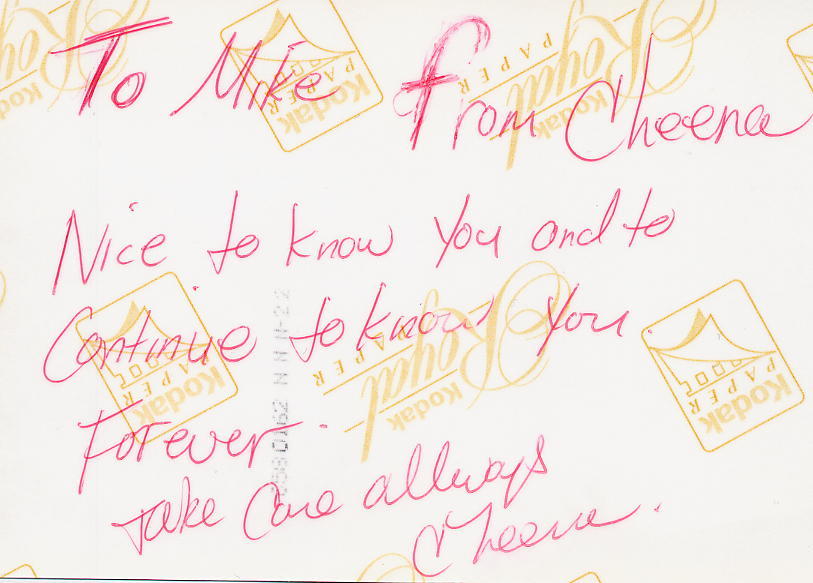 To Mike From Cheena
Nice to know you and to
Continue to know you.
Forever.
take Care allways
Cheena.
Kodak
Royal
PAPER
Kodak
PAPER
Kodak
Royal
PAPER
Kodak
PAPER
Kodak
Royal
PAPER
Kodak
PAPER